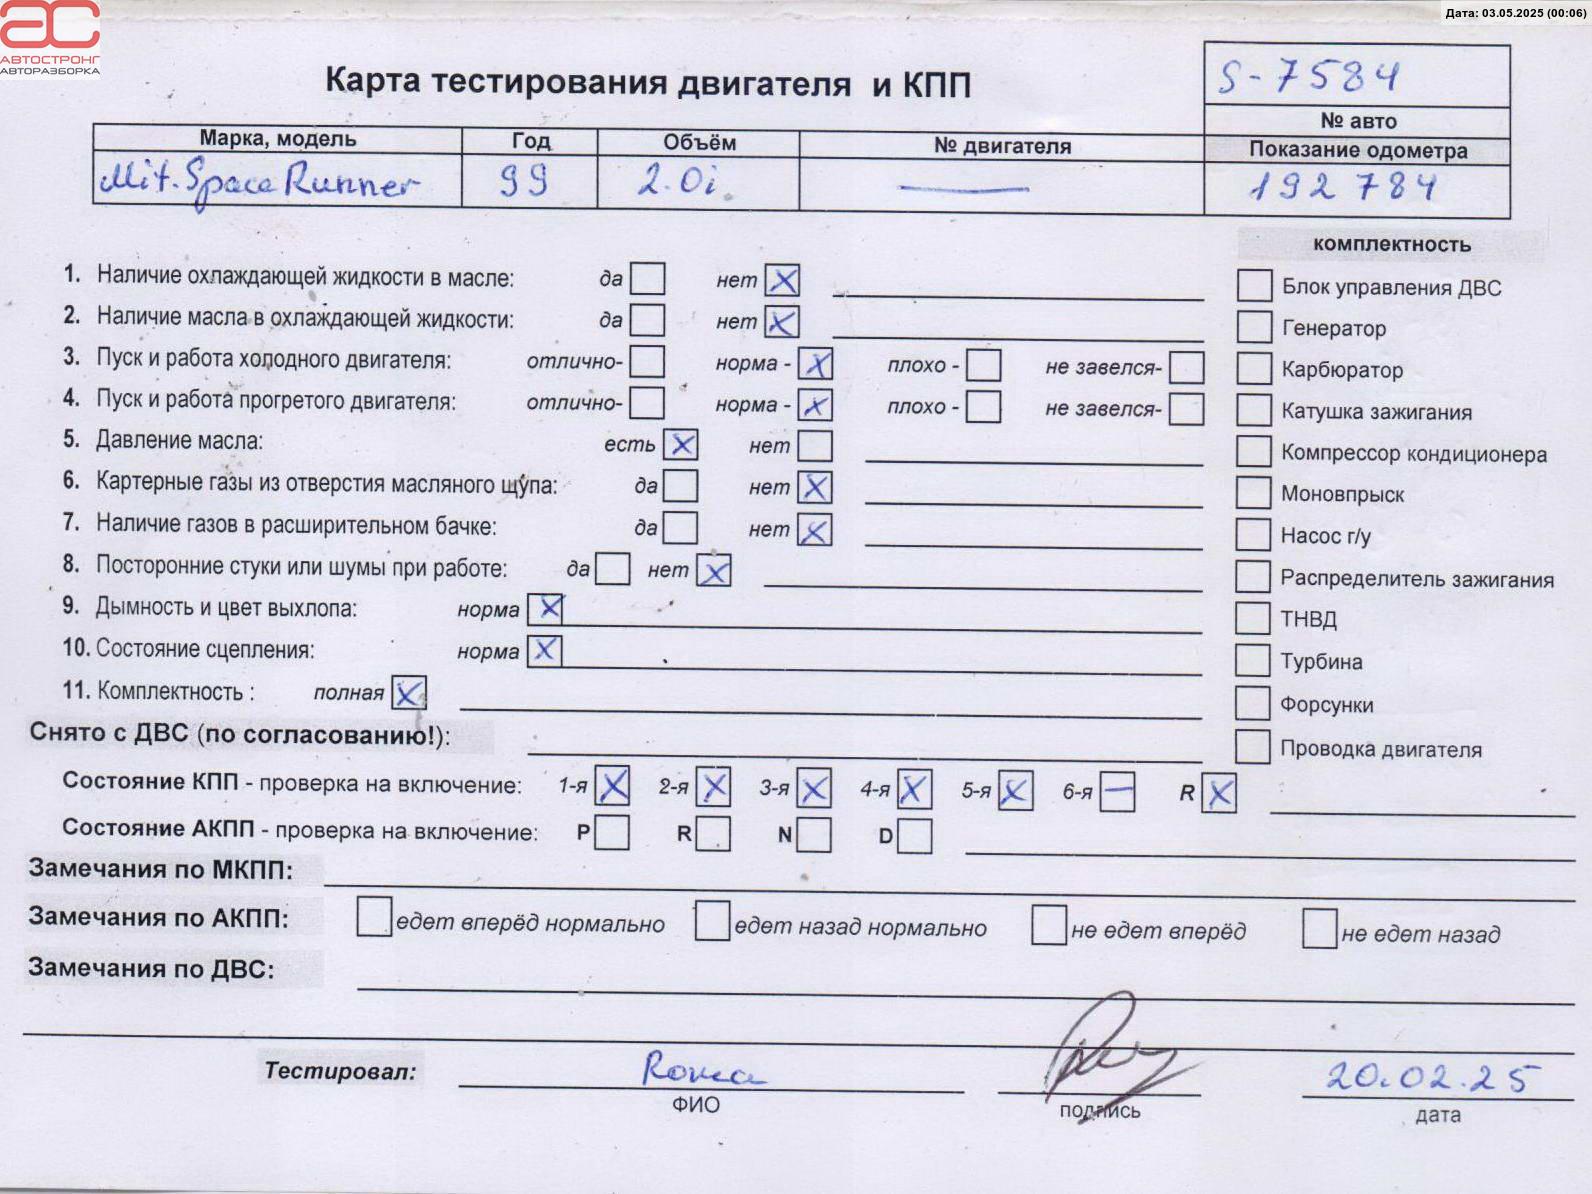 АС
АВТОСТРОНГ
АВТОРАЗБОРКА
Дата: 03.05.2025 (00:06)
Карта тестирования двигателя и КПП
S-7584
№ авто
Марка, модель Год Объём № двигателя Показание одометра
Mit. Space Runner 99 2.0i — 192 784
комплектность
1. Наличие охлаждающей жидкости в масле: да нет X
2. Наличие масла в охлаждающей жидкости: да нет X
3. Пуск и работа холодного двигателя: отлично- норма - X плохо - не завелся-
4. Пуск и работа прогретого двигателя: отлично- норма - X плохо - не завелся-
5. Давление масла: есть X нет
6. Картерные газы из отверстия масляного щупа: да нет X
7. Наличие газов в расширительном бачке: да нет X
8. Посторонние стуки или шумы при работе: да нет X
9. Дымность и цвет выхлопа: норма X
10. Состояние сцепления: норма X
11. Комплектность : полная X
Блок управления ДВС
Генератор
Карбюратор
Катушка зажигания
Компрессор кондиционера
Моновпрыск
Насос г/у
Распределитель зажигания
ТНВД
Турбина
Форсунки
Проводка двигателя
Снято с ДВС (по согласованию!):
Состояние КПП - проверка на включение: 1-я X 2-я X 3-я X 4-я X 5-я X 6-я — R X
Состояние АКПП - проверка на включение: P R N D
Замечания по МКПП:
Замечания по АКПП: едет вперёд нормально едет назад нормально не едет вперёд не едет назад
Замечания по ДВС:
Тестировал: Рома 20.02.25
ФИО подпись дата